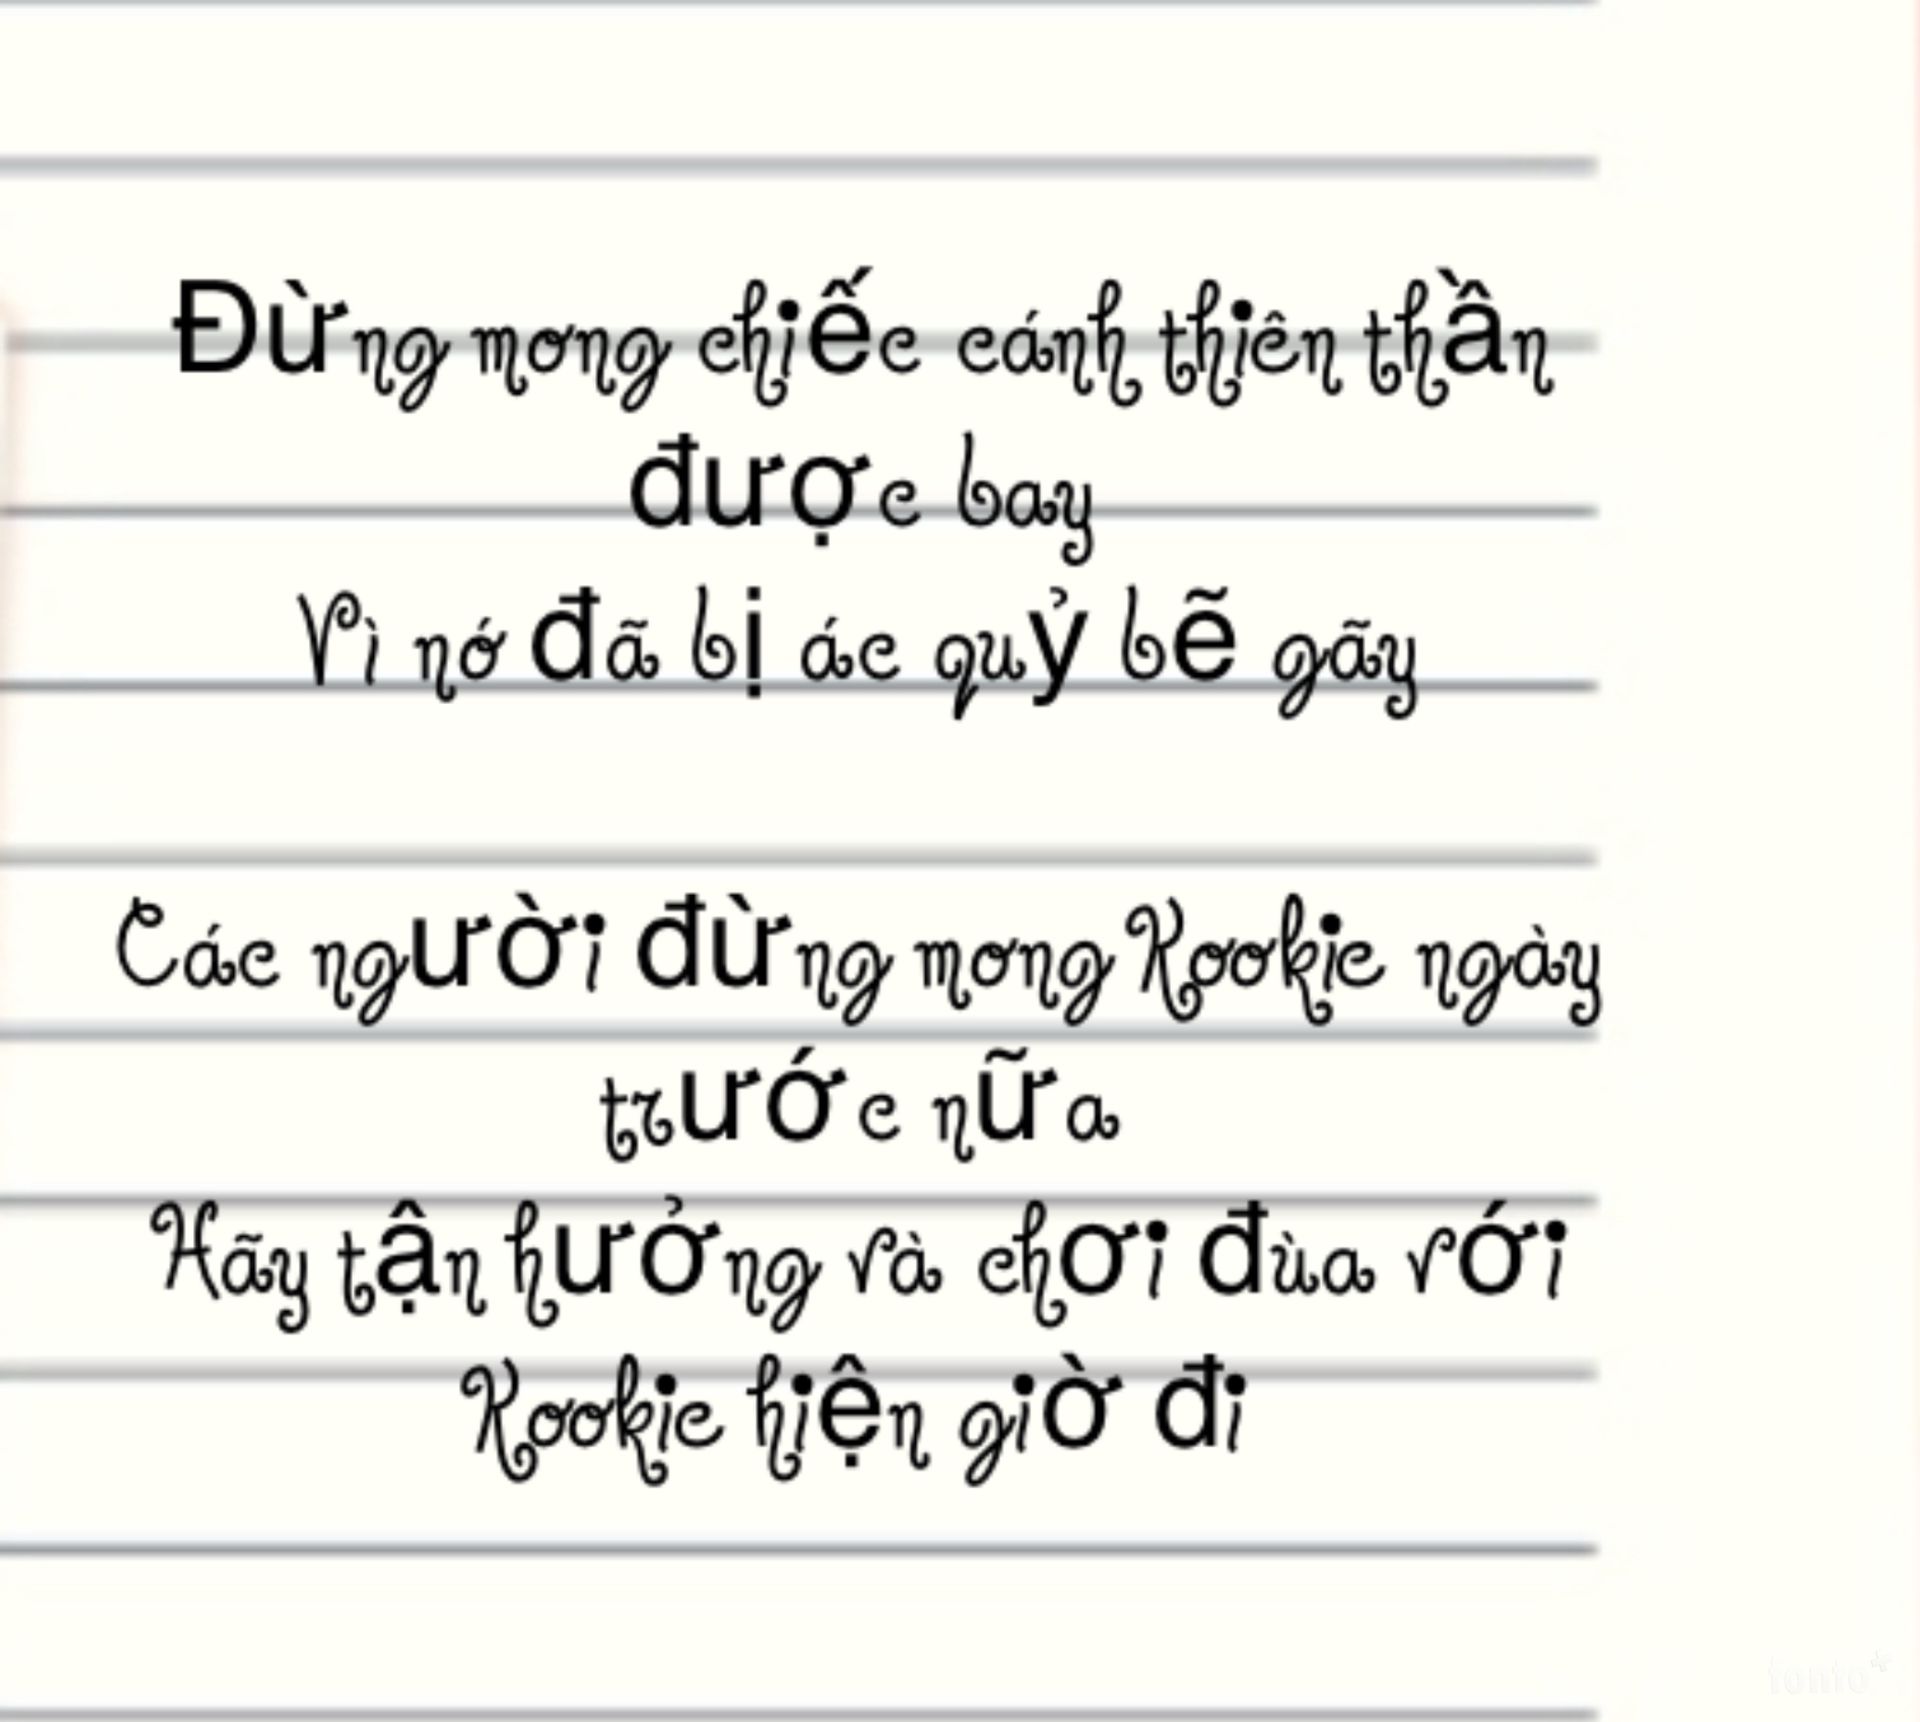 Đừng mong chiếc cánh thiên thần
được bay
Vì nó đã bị ác quỷ bẽ gãy
Các người đừng mong Kookie ngày
trước nữa
Hãy tận hưởng và chơi đùa với
Kookie hiện giờ đi
fonto+